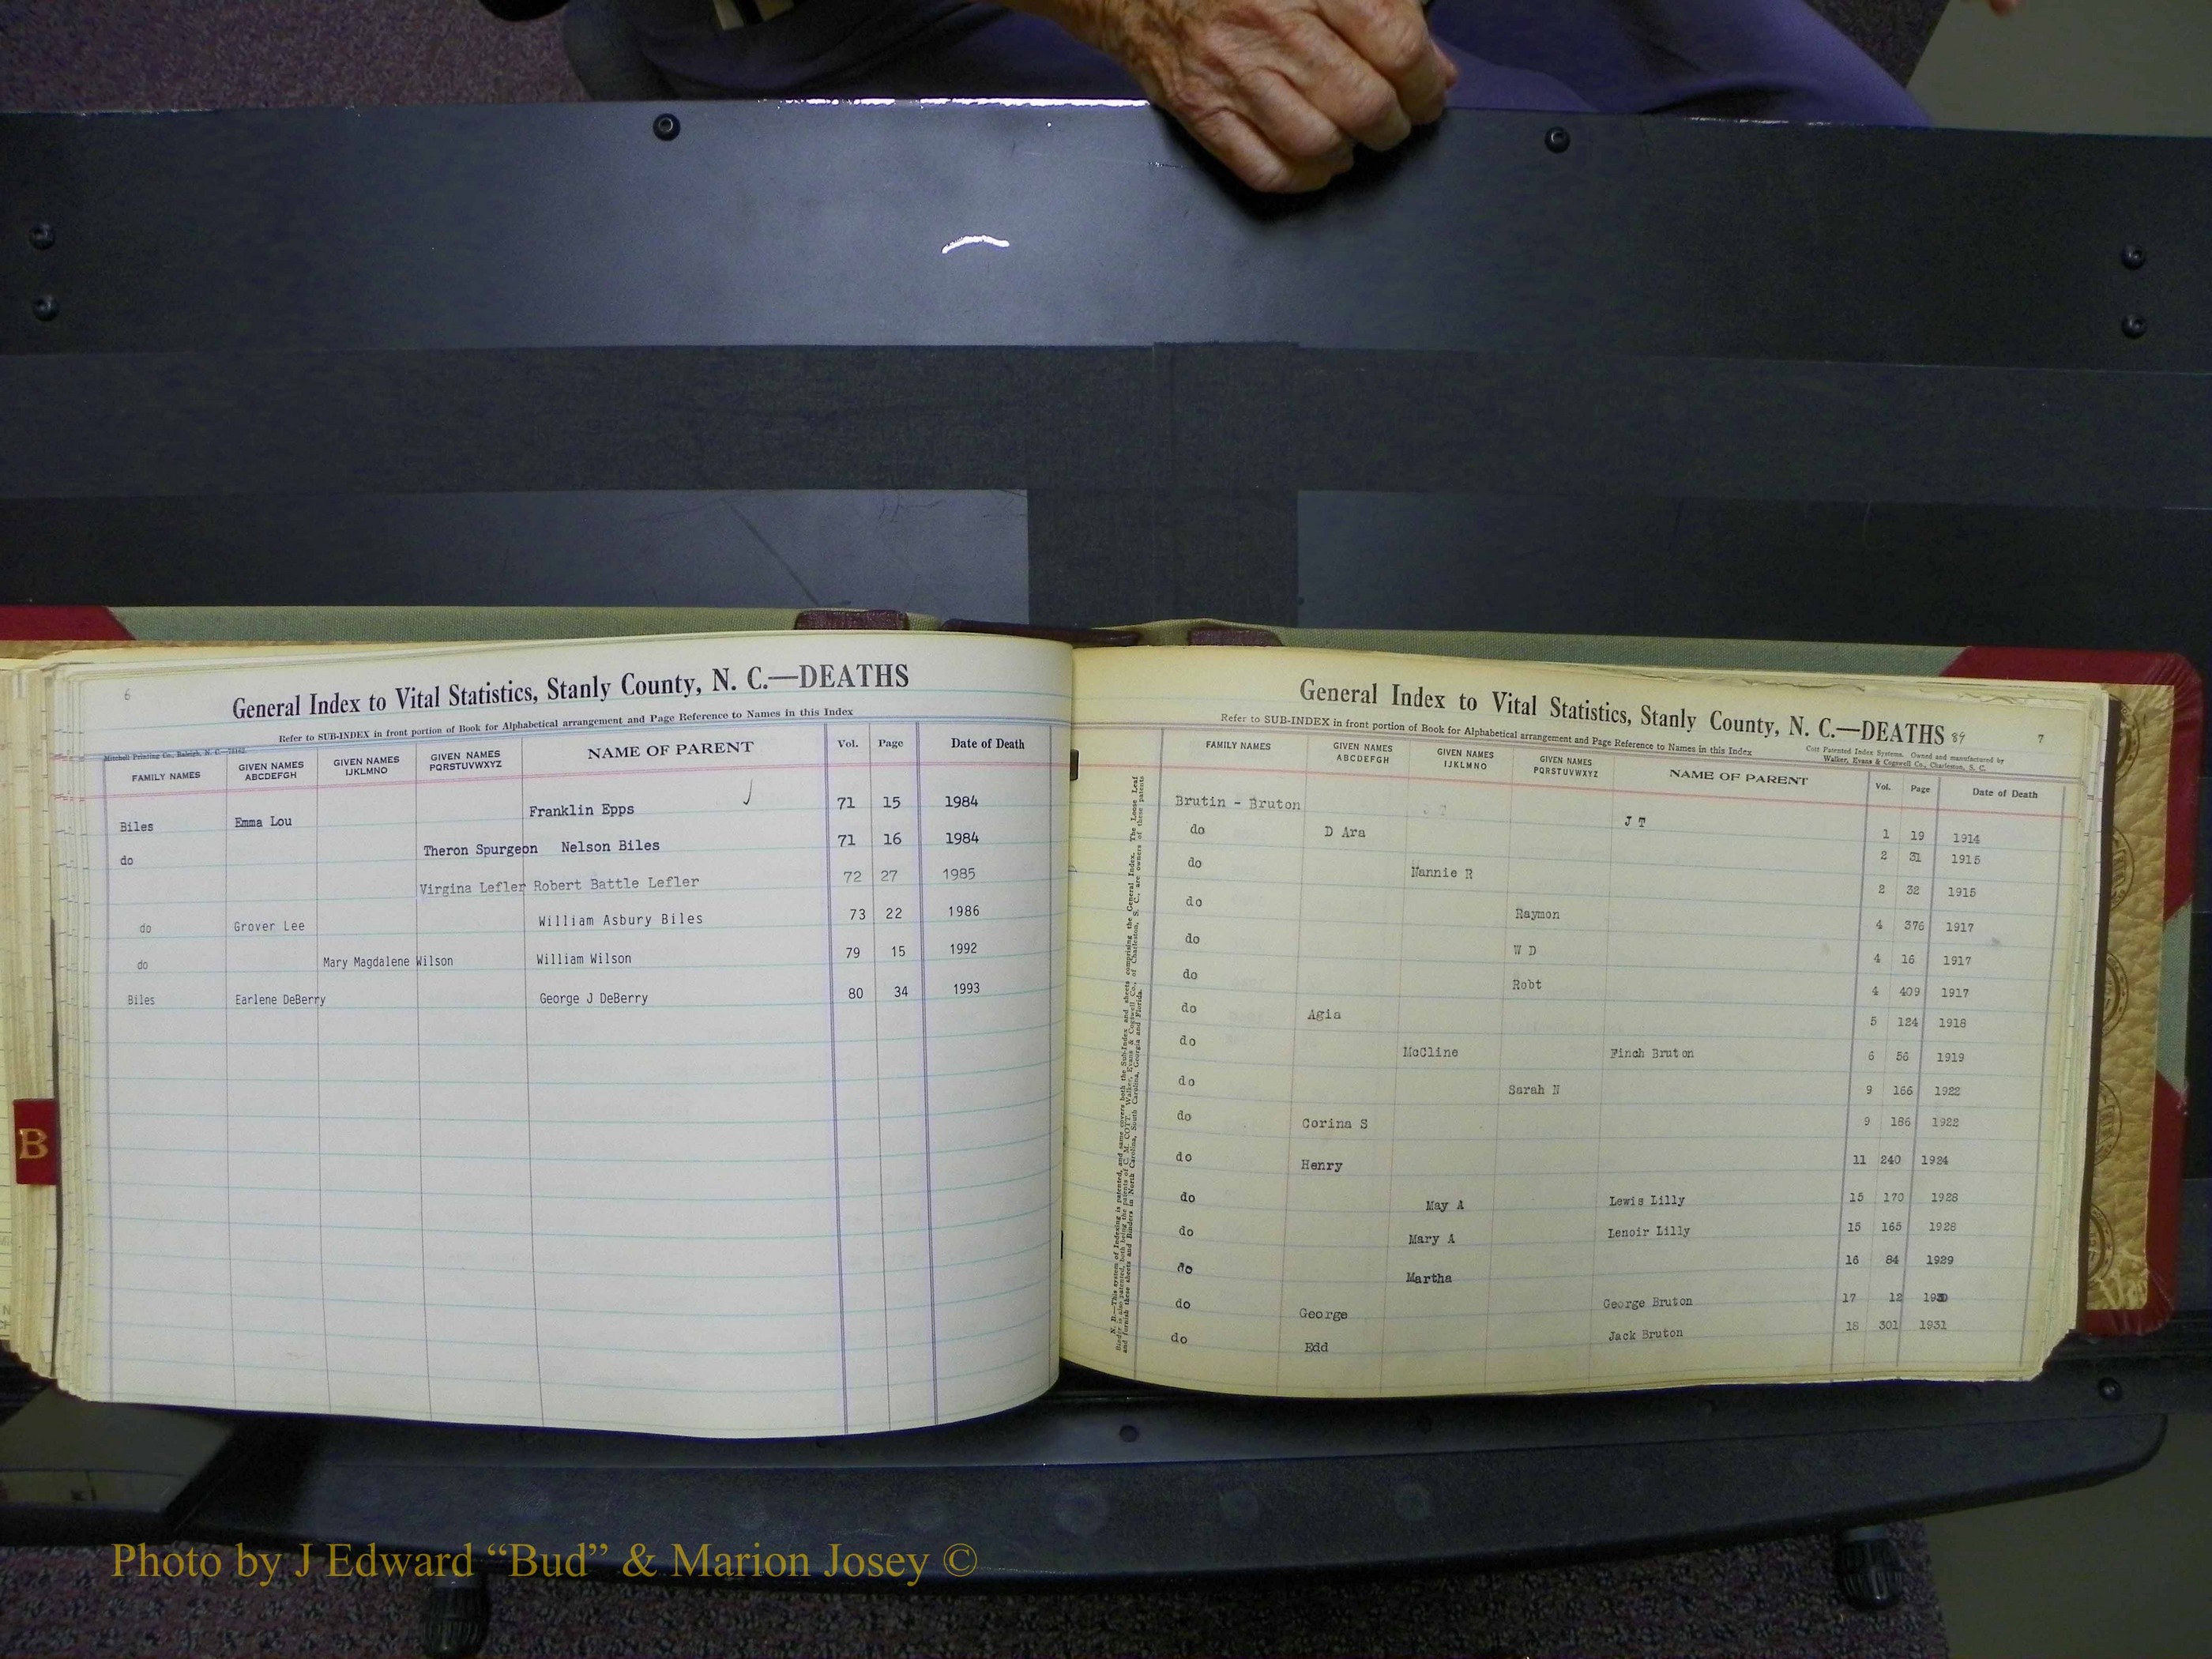 6
General Index to Vital Statistics, Stanly County, N. C.—DEATHS
Refer to SUB-INDEX in front portion of Book for Alphabetical arrangement and Page Reference to Names in this Index
Mitchell Printing Co., Raleigh, N. C.
FAMILY NAMES GIVEN NAMES ABCDEFGH GIVEN NAMES IJKLMNO GIVEN NAMES PQRSTUVWXYZ NAME OF PARENT Vol. Page Date of Death
Biles Emma Lou Franklin Epps 71 15 1984
do Theron Spurgeon Nelson Biles 71 16 1984
Virgina Lefler Robert Battle Lefler 72 27 1985
do Grover Lee William Asbury Biles 73 22 1986
do Mary Magdalene Wilson William Wilson 79 15 1992
Biles Earlene DeBerry George J DeBerry 80 34 1993
B
General Index to Vital Statistics, Stanly County, N. C.—DEATHS 89 7
Refer to SUB-INDEX in front portion of Book for Alphabetical arrangement and Page Reference to Names in this Index
Cott Patented Index Systems. Owned and manufactured by
Walker, Evans & Cogswell Co., Charleston, S. C.
FAMILY NAMES GIVEN NAMES ABCDEFGH GIVEN NAMES IJKLMNO GIVEN NAMES PQRSTUVWXYZ NAME OF PARENT Vol. Page Date of Death
Brutin - Bruton J T 1 19 1914
do D Ara 2 31 1915
do Nannie R 2 32 1915
do Raymon 4 376 1917
do W D 4 16 1917
do Robt 4 409 1917
do Agia 5 124 1918
do McCline Finch Bruton 6 56 1919
do Sarah N 9 166 1922
do Corina S 9 186 1922
do Henry 11 240 1924
do May A Lewis Lilly 15 170 1928
do Mary A Lenoir Lilly 15 165 1928
do Martha 16 84 1929
do George George Bruton 17 12 1930
do Edd Jack Bruton 18 301 1931
N. B.—This system of Indexing is patented, and same covers both the Sub-Index and sheets comprising the General Index. The Loose Leaf
Binder is also patented, both being the patents of C. M. COTT. Walker, Evans & Cogswell Co., of Charleston, S. C., are owners of these patents
and furnish these sheets and Binders in North Carolina, South Carolina, Georgia and Florida.
Photo by J Edward “Bud” & Marion Josey ©